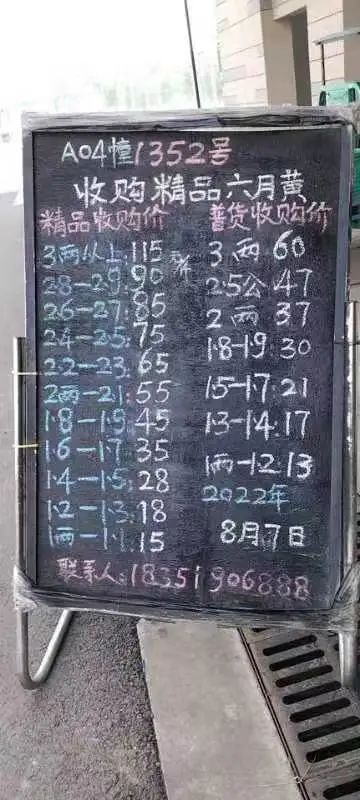 A04幢1352号
收购精品六月黄
精品收购价
3两以上:115
元/斤
28-29:90
26-27:85
24-25:75
22-23:65
2两-21:55
1.8-1.9:45
1.6-1.7:35
1.4-1.5:28
1.2-1.3:18
1两-1.1:15
普货收购价
3两60
25公47
2两37
1.8-19:30
1.5-1.7:21
1.3-14:17
1两-12:13
2022年
8月7日
联系人:18351906888